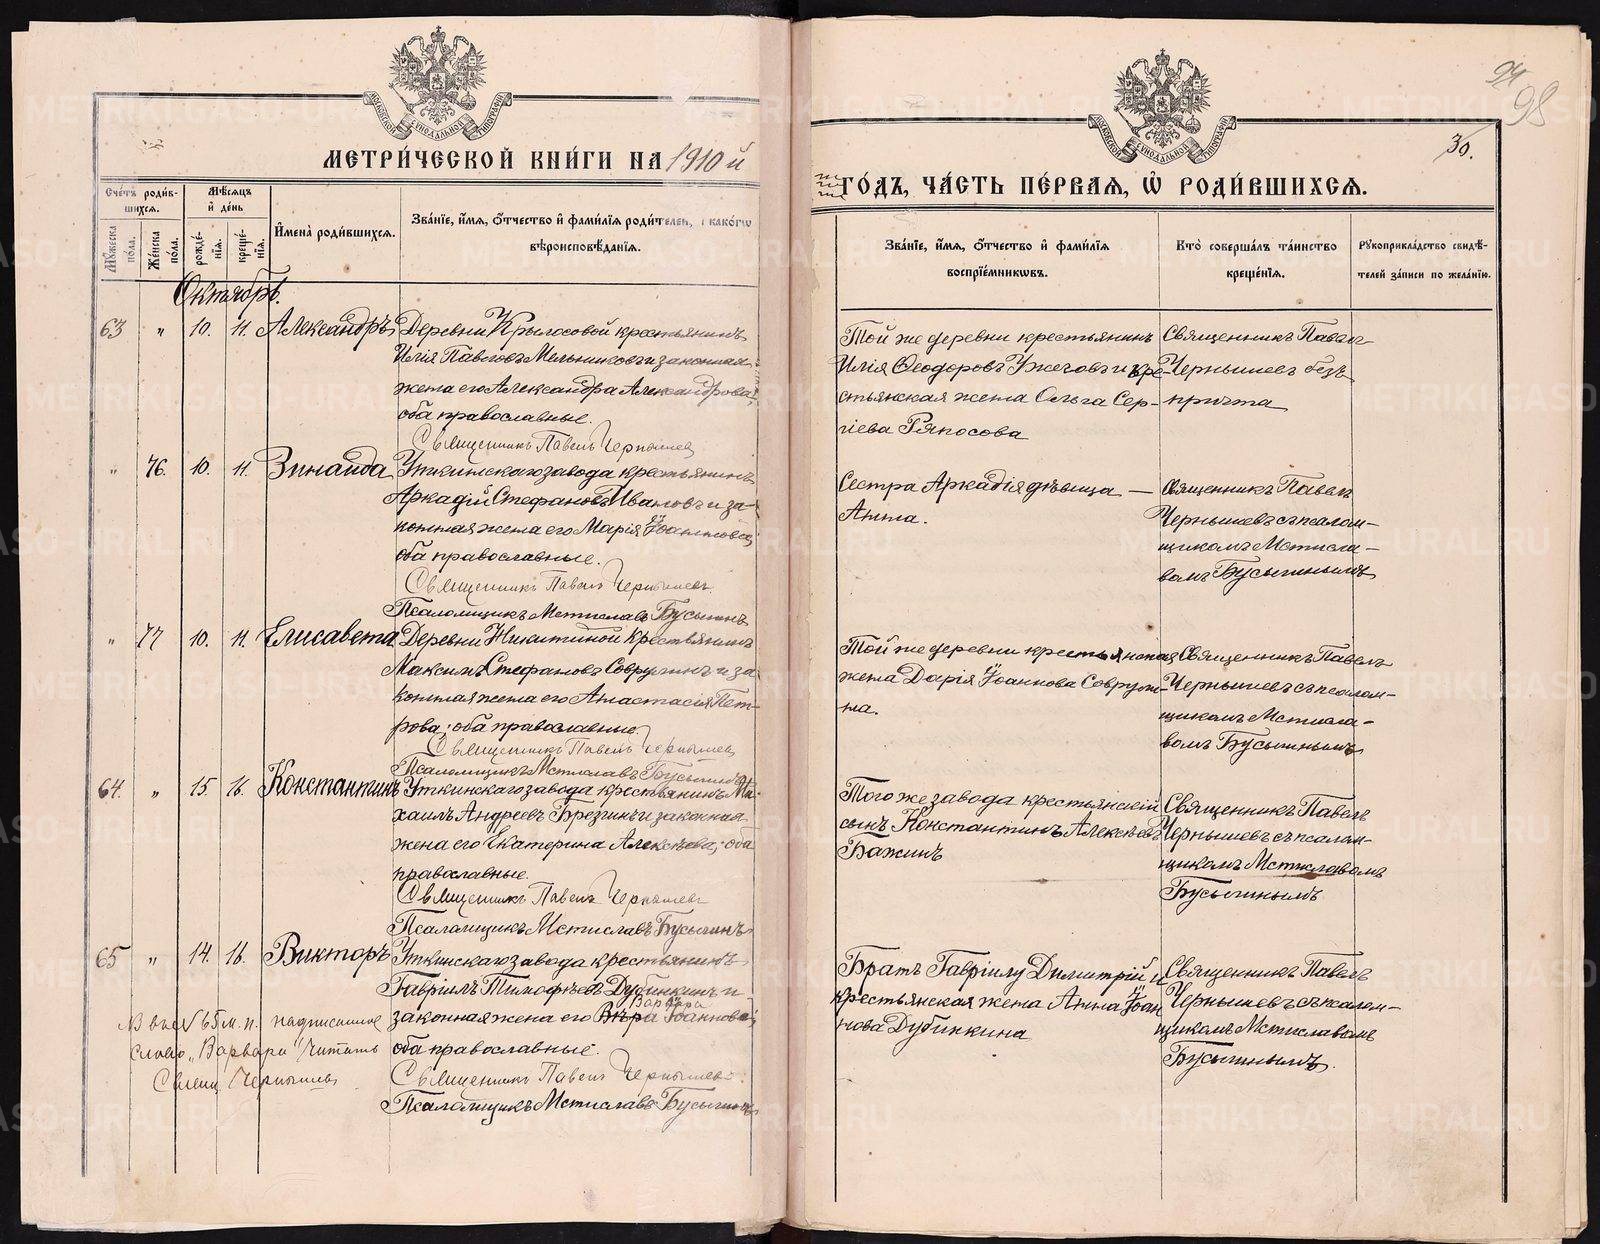 МОСКОВСКОЙ СѴНОДАЛЬНОЙ ТИПОГРАФІИ
МЕТРИ́ЧЕСКОЙ КНИ́ГИ НА 1910 й
Сче́тъ роди́в-
шихся.
Мѣсяцъ
и҆ де́нь
Му́жеска
по́ла.
Же́нска
по́ла.
рожде́-
нїя.
креще́-
нїя.
И҆мена̀ роди́вшихся.
Зва́нїе, и҆́мя, ѻ҆́тчество и҆ фами́лїя роди́телей, и҆ како́гѡ
вѣроисповѣ́данїя.
Октябрь.
63 " 10. 11. Александръ Деревни Крылосовой крестьянинъ
Илія Павловъ Мельниковъ и законная
жена его Александра Александрова;
оба православные.
Священникъ Павелъ Чернышев
" 76. 10. 11. Зинаида Уткинскаго завода крестьянинъ
Аркадій Стефановъ Ивановъ и за-
конная жена его Марія Іоаннова;
оба православные.
Священникъ Павелъ Чернышевъ
Псаломщикъ Мстиславъ Бусыгинъ
" 77 10. 11. Елисавета Деревни Никитиной крестьянинъ
Максимъ Стефановъ Совружинъ и за-
конная жена его Анастасія Пет-
рова; оба православные.
Священникъ Павелъ Чернышев
Псаломщикъ Мстиславъ Бусыгинъ
64. " 15. 16. Константинъ Уткинскаго завода крестьянинъ Ми-
хаилъ Андреевъ Брезгинъ и законная
жена его Екатерина Алексѣева; оба
православные.
Священникъ Павелъ Чернышев
Псаломщикъ Мстиславъ Бусыгинъ
65 " 14. 16. Викторъ Уткинскаго завода крестьянинъ
Гавріилъ Тимофѣевъ Дубинкинъ и
Варвара
законная жена его Вѣра Іоаннова;
оба православные.
Священникъ Павелъ Чернышев
Псаломщикъ Мстиславъ Бусыгинъ
65 м. п. надписанное
слово "Варвара" читать
Свящ. Чернышевъ
94
98
30.
МОСКОВСКОЙ СѴНОДАЛЬНОЙ ТИПОГРАФІИ
ГО́ДЪ, ЧА́СТЬ ПЕ́РВАЯ, Ѡ҆ РОДИ́ВШИХСЯ.
Зва́нїе, и҆́мя, ѻ҆́тчество и҆ фами́лїя
воспрїе́мникѡвъ.
Кто̀ соверша́лъ та́инство
креще́нїя.
Рꙋкоприкла́дство свидѣ́-
телей за́писи по жела́нїю.
Той же деревни крестьянин
Илія Ѳеодоровъ Ужеговъ и кре-
стьянская жена Ольга Сер-
гіева Ряпосова
Священникъ Павелъ
Чернышевъ безъ
причта
Сестра Аркадія дѣвица
Анна.
Священникъ Павелъ
Чернышевъ съ псалом-
щикомъ Мстисла-
вомъ Бусыгинымъ
Той же деревни крестьянская
жена Дарія Іоаннова Совружи-
на.
Священникъ Павелъ
Чернышевъ съ псалом-
щикомъ Мстисла-
вомъ Бусыгинымъ
Того же завода крестьянскій
сынъ Константинъ Алексѣевъ
Бажинъ
Священникъ Павелъ
Чернышевъ съ псалом-
щикомъ Мстиславомъ
Бусыгинымъ
Братъ Гавріилу Димитрій и
крестьянская жена Анна Іоан
нова Дубинкина
Священникъ Павелъ
Чернышевъ съ псалом-
щикомъ Мстиславомъ
Бусыгинымъ.
METRIKI.GASO-URAL.RU